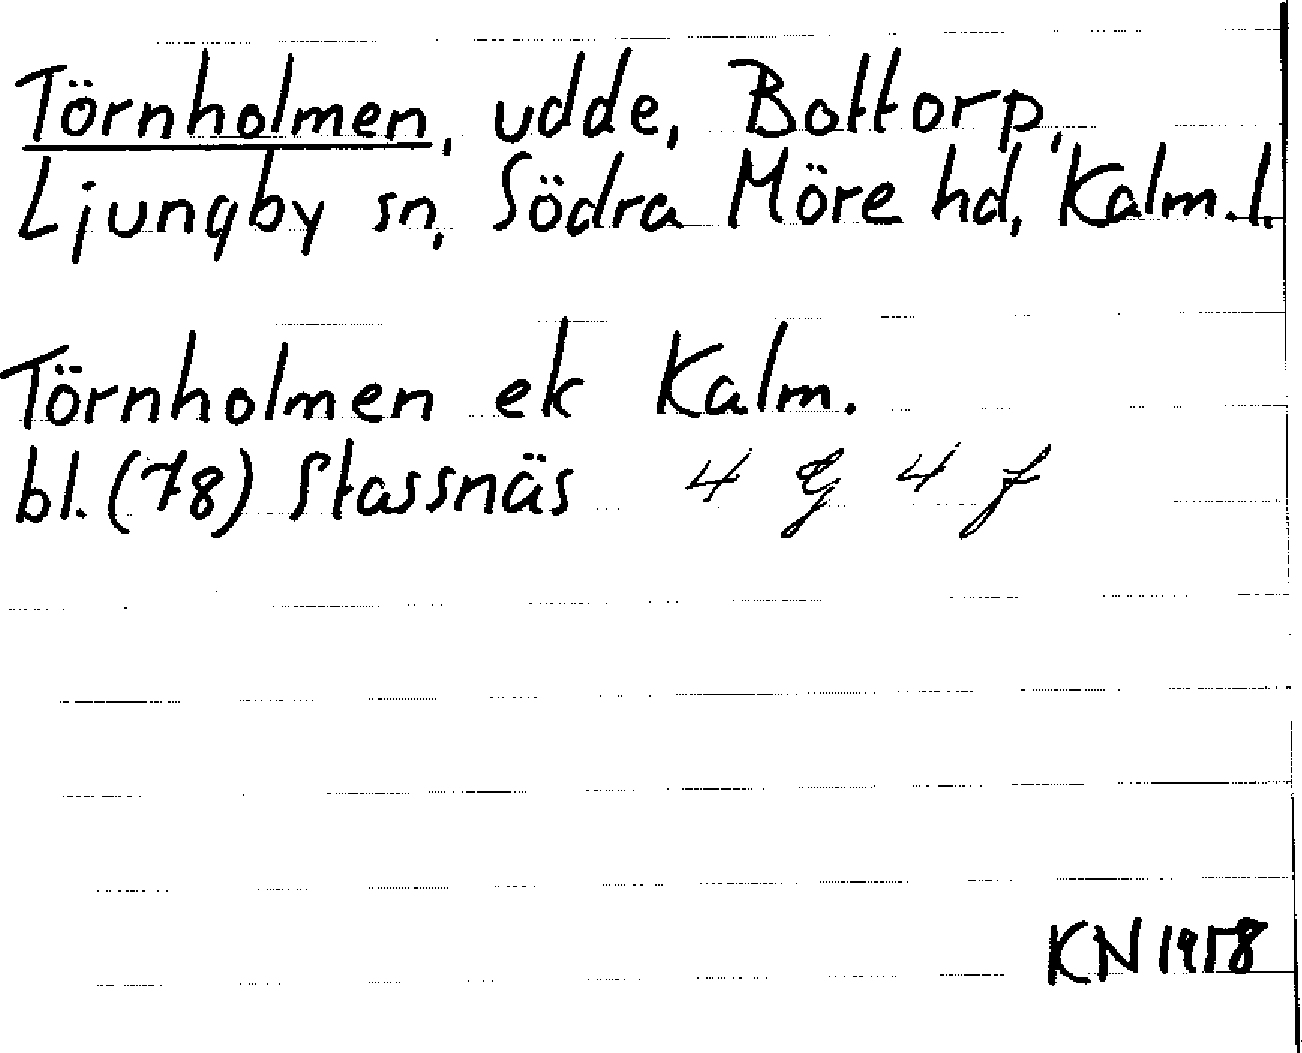 Törnholmen, udde, Bottorp,
Ljungby sn, Södra Möre hd, Kalm. l.
Törnholmen ek Kalm.
bl. (78) Stassnäs 4 G 4 f
KN 1958